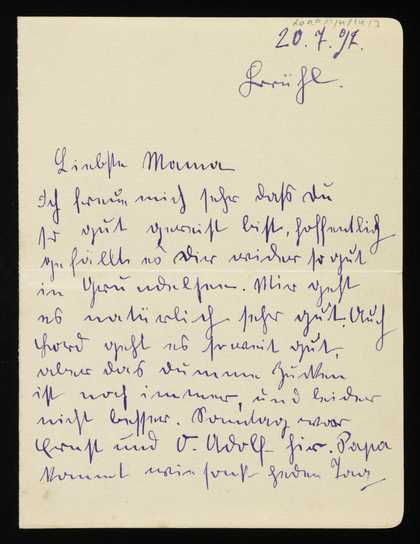 20.7.97.
Brühl.
Liebste Mama
Ich freue mich sehr daß du
so gut gereist bist, hoffentlich
gefällts es Dir wider so gut
in Grundelsee. Mir geht
es natürlich sehr gut. Auch
Lord geht es soweit gut,
aber das dumme Zucken
ist noch immer, und leider
nicht besser. Sonntag war
Ernst und O. Adolf hir. Papa
kommt wie sonst jeden Tag